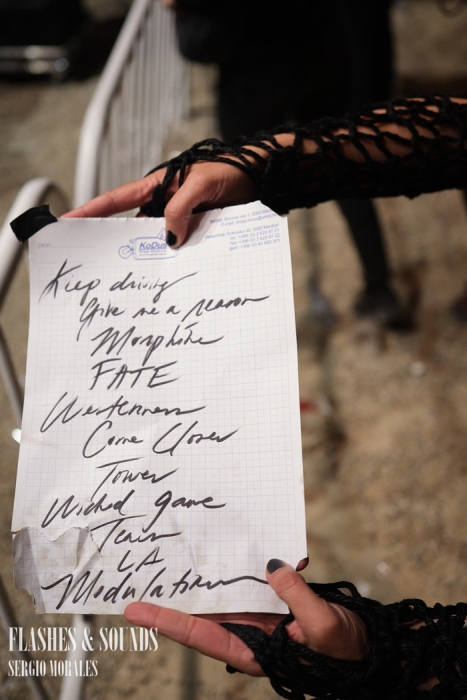 KoDus
Keep driving
Give me a reason
Morphine
FATE
Westerners
Come Closer
Tower
Wicked game
Tears
LA
Modulations
FLASHES & SOUNDS
SERGIO MORALES